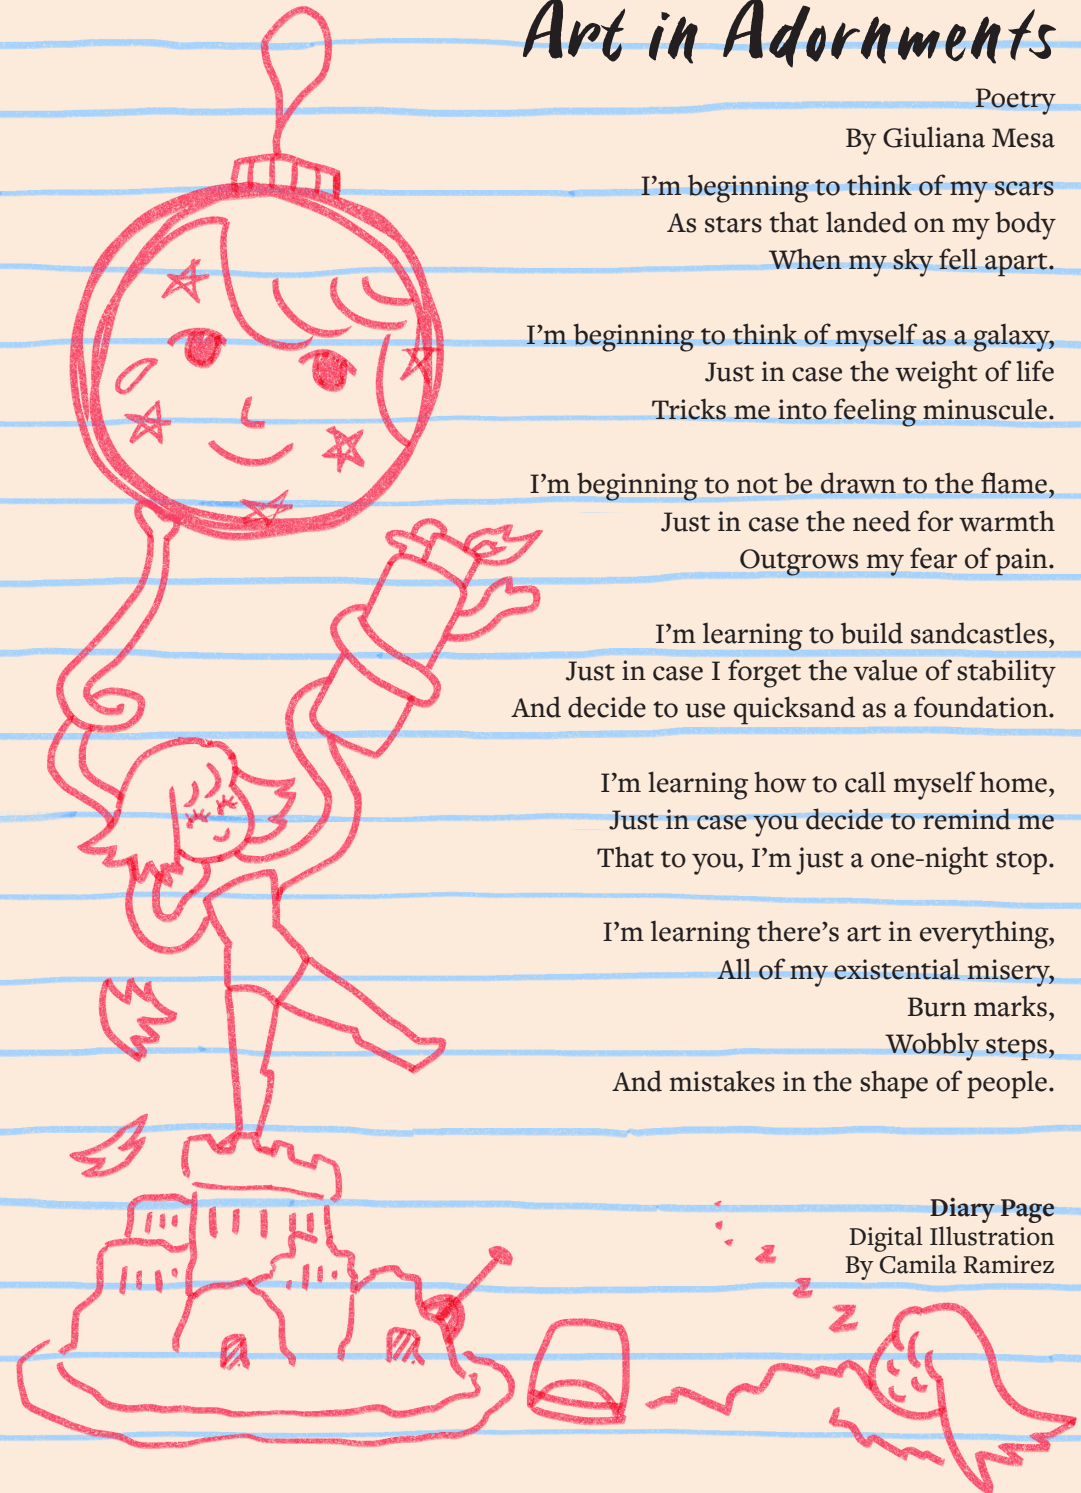 Art in Adornments
Poetry
By Giuliana Mesa
I’m beginning to think of my scars
As stars that landed on my body
When my sky fell apart.
I’m beginning to think of myself as a galaxy,
Just in case the weight of life
Tricks me into feeling minuscule.
I’m beginning to not be drawn to the flame,
Just in case the need for warmth
Outgrows my fear of pain.
I’m learning to build sandcastles,
Just in case I forget the value of stability
And decide to use quicksand as a foundation.
I’m learning how to call myself home,
Just in case you decide to remind me
That to you, I’m just a one-night stop.
I’m learning there’s art in everything,
All of my existential misery,
Burn marks,
Wobbly steps,
And mistakes in the shape of people.
Diary Page
Digital Illustration
By Camila Ramirez
z
z
z